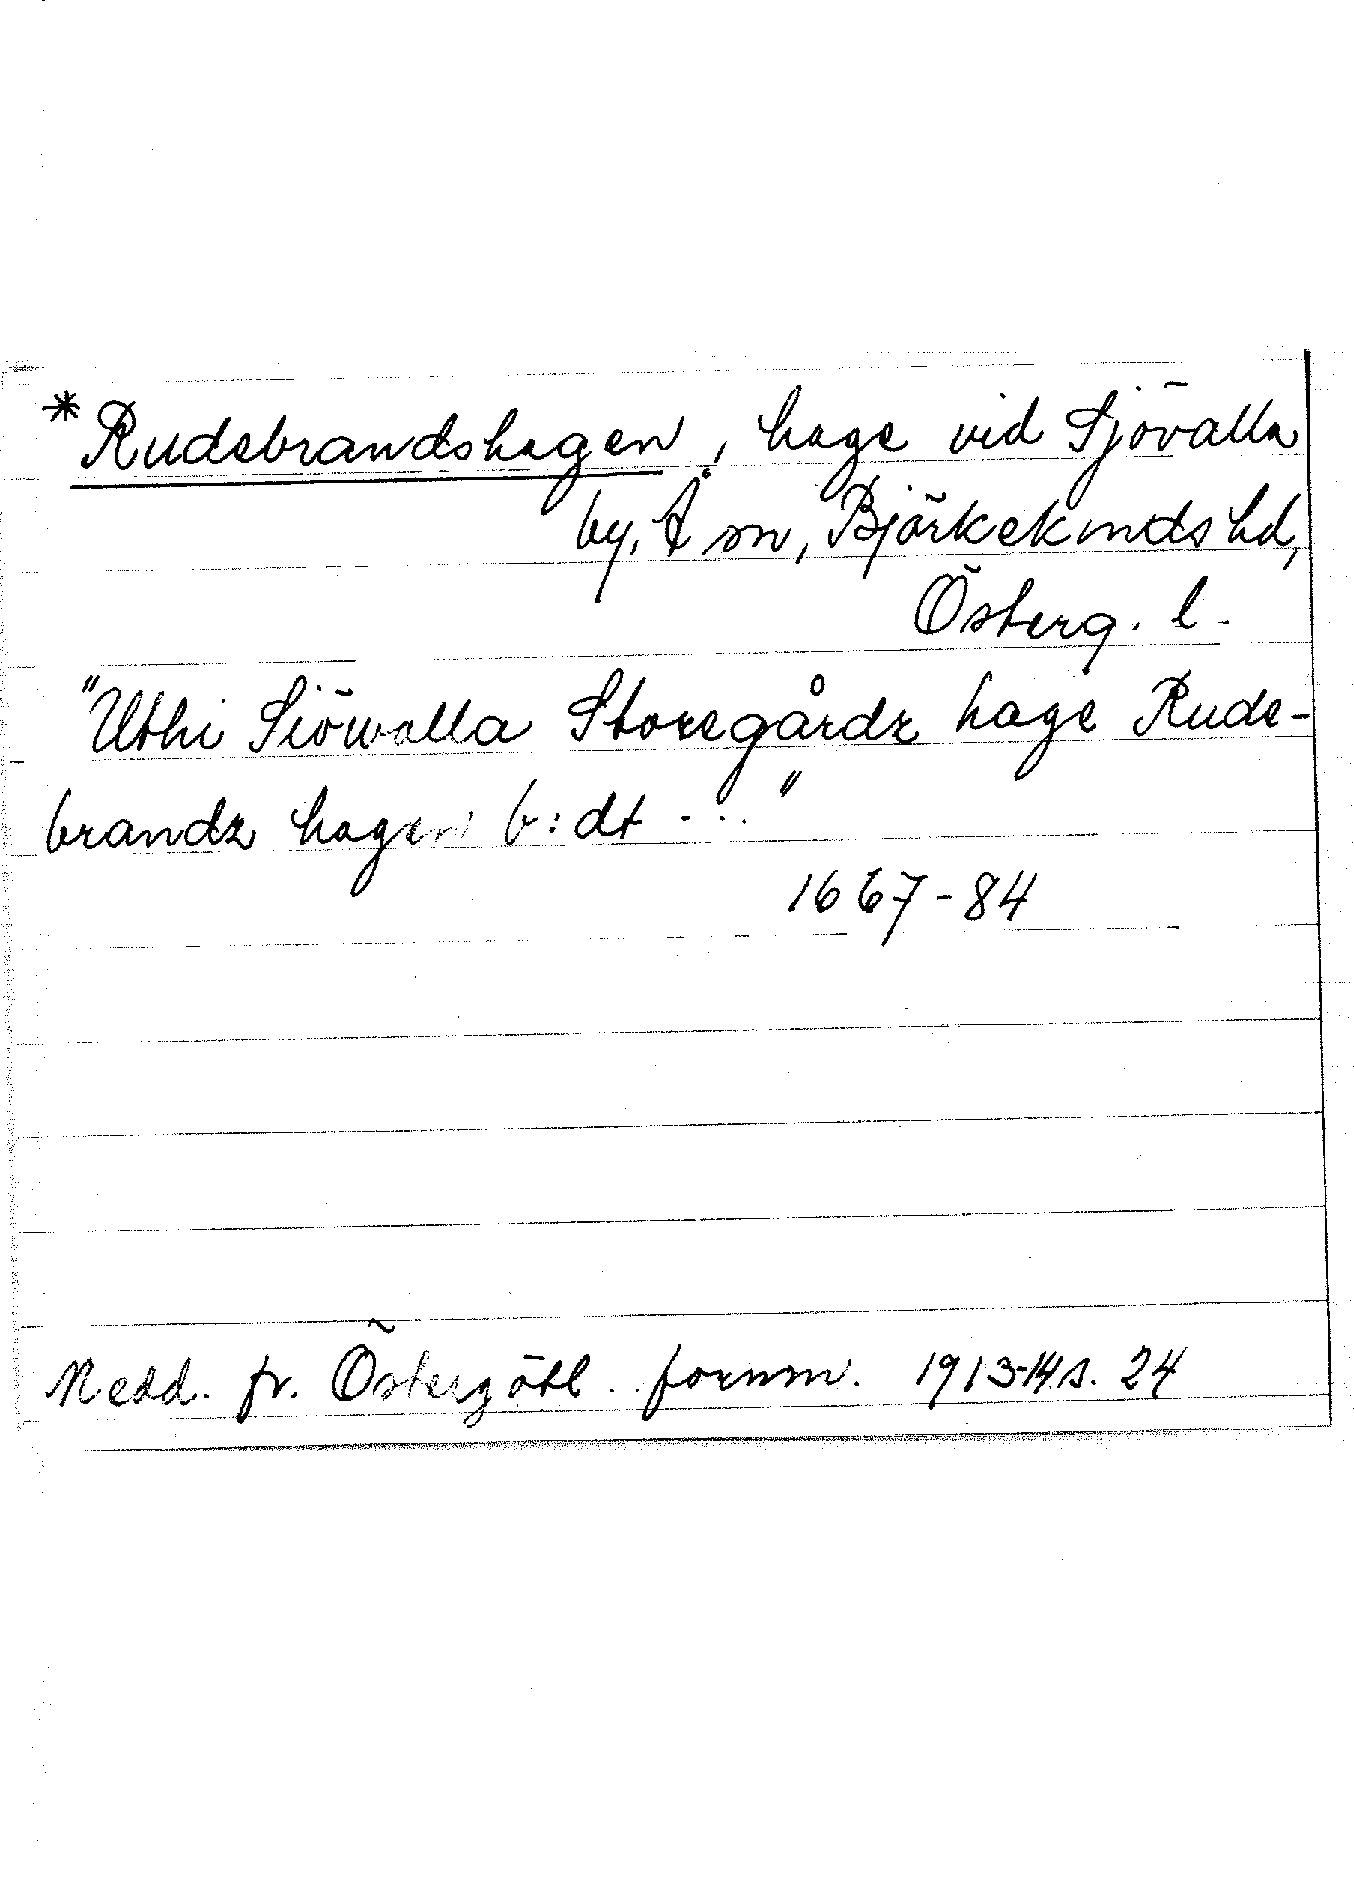 * Rudebrandshagen, hage vid Sjövalla
by, Å sn, Björkekinds hd,
Österg. l.
"Uthi Siöwalla Storegårdz hage Rude-
brandz hagen b:dt ..."
1667-84
Medd. fr. Östergötl. fornm. 1913-14 s. 24